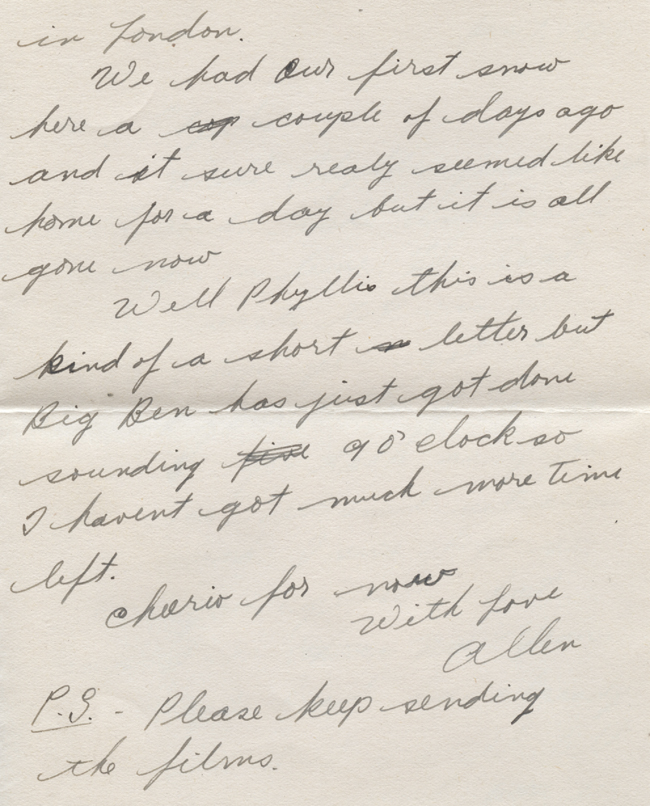 in London.
We had our first snow
here a cop couple of days ago
and it sure realy seemed like
home for a day but it is all
gone now
Well Phyllis this is a
kind of a short letter but
Big Ben has just got done
sounding five 9 o'clock so
I havent got much more time
left.
Cheerio for now
With Love
Allen
P.S. - Please keep sending
the films.